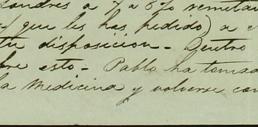 ondres a 7/a 8% remitan
- que les has pedido) a c
tu disposicion - Dentro
bre esto - Pablo ha tomad
la medicina y volverse con